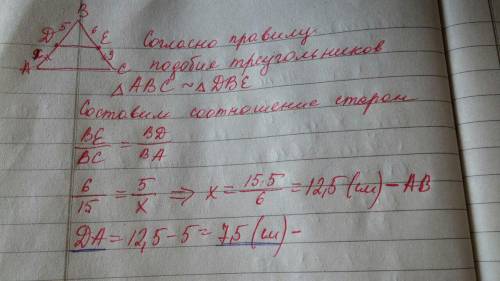 B
D 5 6 E
x 9
A C
Согласно правилу
подобия треугольников
△ABC ~ △DBE
Составим соотношение сторон
BE/BC = BD/BA
6/15 = 5/x ⇒ x = 15·5/6 = 12,5 (см) – AB
DA = 12,5 – 5 = 7,5 (см) –